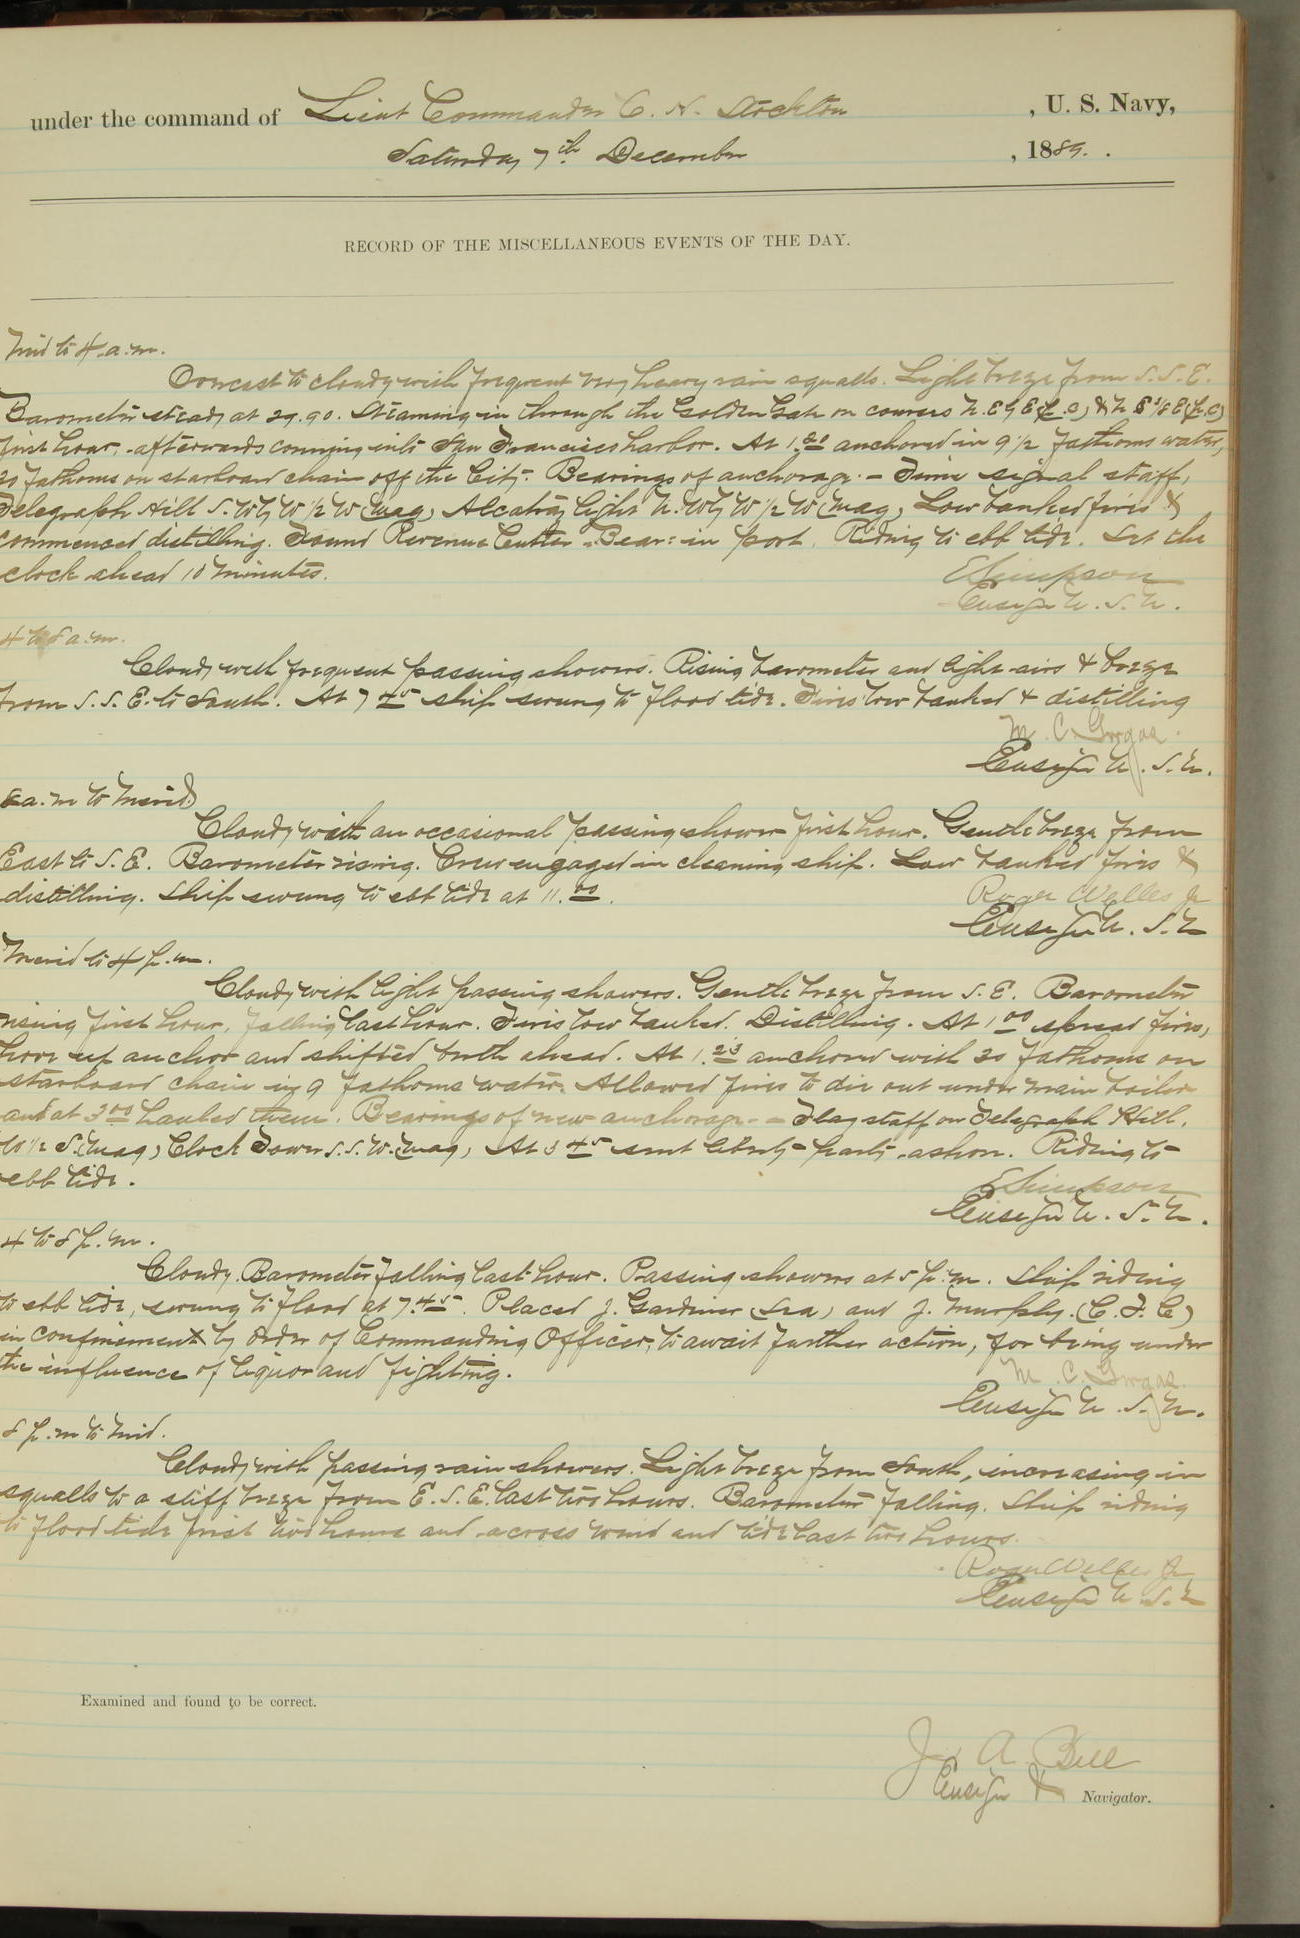 under the command of Lieut Commander C. H. Stockton , U. S. Navy,
Saturday 7th December , 1889.
RECORD OF THE MISCELLANEOUS EVENTS OF THE DAY.
Mid to 4 a.m.
Overcast to cloudy with frequent very heavy rain squalls. Light breeze from S.S.E.
Barometer steady at 29.90. Steaming in through the Golden Gate on courses N.E by E (p.c) & N E 3/8 E (p.c)
first hour, afterwards coming into San Francisco harbor. At 1.20 anchored in 9 1/2 fathoms water,
30 fathoms on starboard chain off the City. Bearings of anchorage - Time signal staff,
Telegraph Hill S.W by W 1/2 W (mag) Alcatraz light N.W by W 1/2 W (mag) Low banked fires &
commenced distilling. Found Revenue Cutter "Bear" in port. Riding to ebb tide. Set the
clock ahead 10 minutes.
E Simpson
Ensign U.S.N.
4 to 8 a.m.
Cloudy with frequent passing showers. Rising barometer and light airs & breeze
from S.S.E. to South. At 7 45 ship swung to flood tide. Fires low banked & distilling
M. C. Gorgas.
Ensign U.S.N.
8 a.m to Merid.
Cloudy with an occasional passing shower first hour. Gentle breeze from
East to S.E. Barometer rising. Crew engaged in cleaning ship. Low banked fires &
distilling. Ship swung to ebb tide at 11.00.
Roger Welles Jr
Ensign U.S.N
Merid to 4 p.m.
Cloudy with light passing showers. Gentle breeze from S.E. Barometer
rising first hour, falling last hour. Fires low banked. Distilling. At 1 00 spread fires,
hove up anchor and shifted berth ahead. At 1.23 anchored with 30 fathoms on
starboard chain in 9 fathoms water. Allowed fires to die out under main boiler
and at 3 00 hauled them. Bearings of new anchorage - Flag staff on Telegraph Hill.
W 1/2 S. (mag) Clock Tower S.S.W. (mag) At 3 45 sent liberty party ashore. Riding to
ebb tide.
E Simpson
Ensign U.S.N.
4 to 8 p.m.
Cloudy. Barometer falling last hour. Passing showers at 5 p.m. Ship riding
to ebb tide, swung to flood at 7.45. Placed J. Gardiner (Sea) and J. Murphy. (C.F.C)
in confinement by order of Commanding Officer, to await further action, for being under
the influence of liquor and fighting.
M. C. Gorgas.
Ensign U.S.N.
8 p.m to Mid.
Cloudy with passing rain showers. Light breeze from South, increasing in
squalls to a stiff breeze from E.S.E. last two hours. Barometer falling. Ship riding
to flood tide first two hours and across wind and tide last two hours.
Roger Welles Jr
Ensign U.S.N
Examined and found to be correct.
J. A. Bell
Ensign & Navigator.